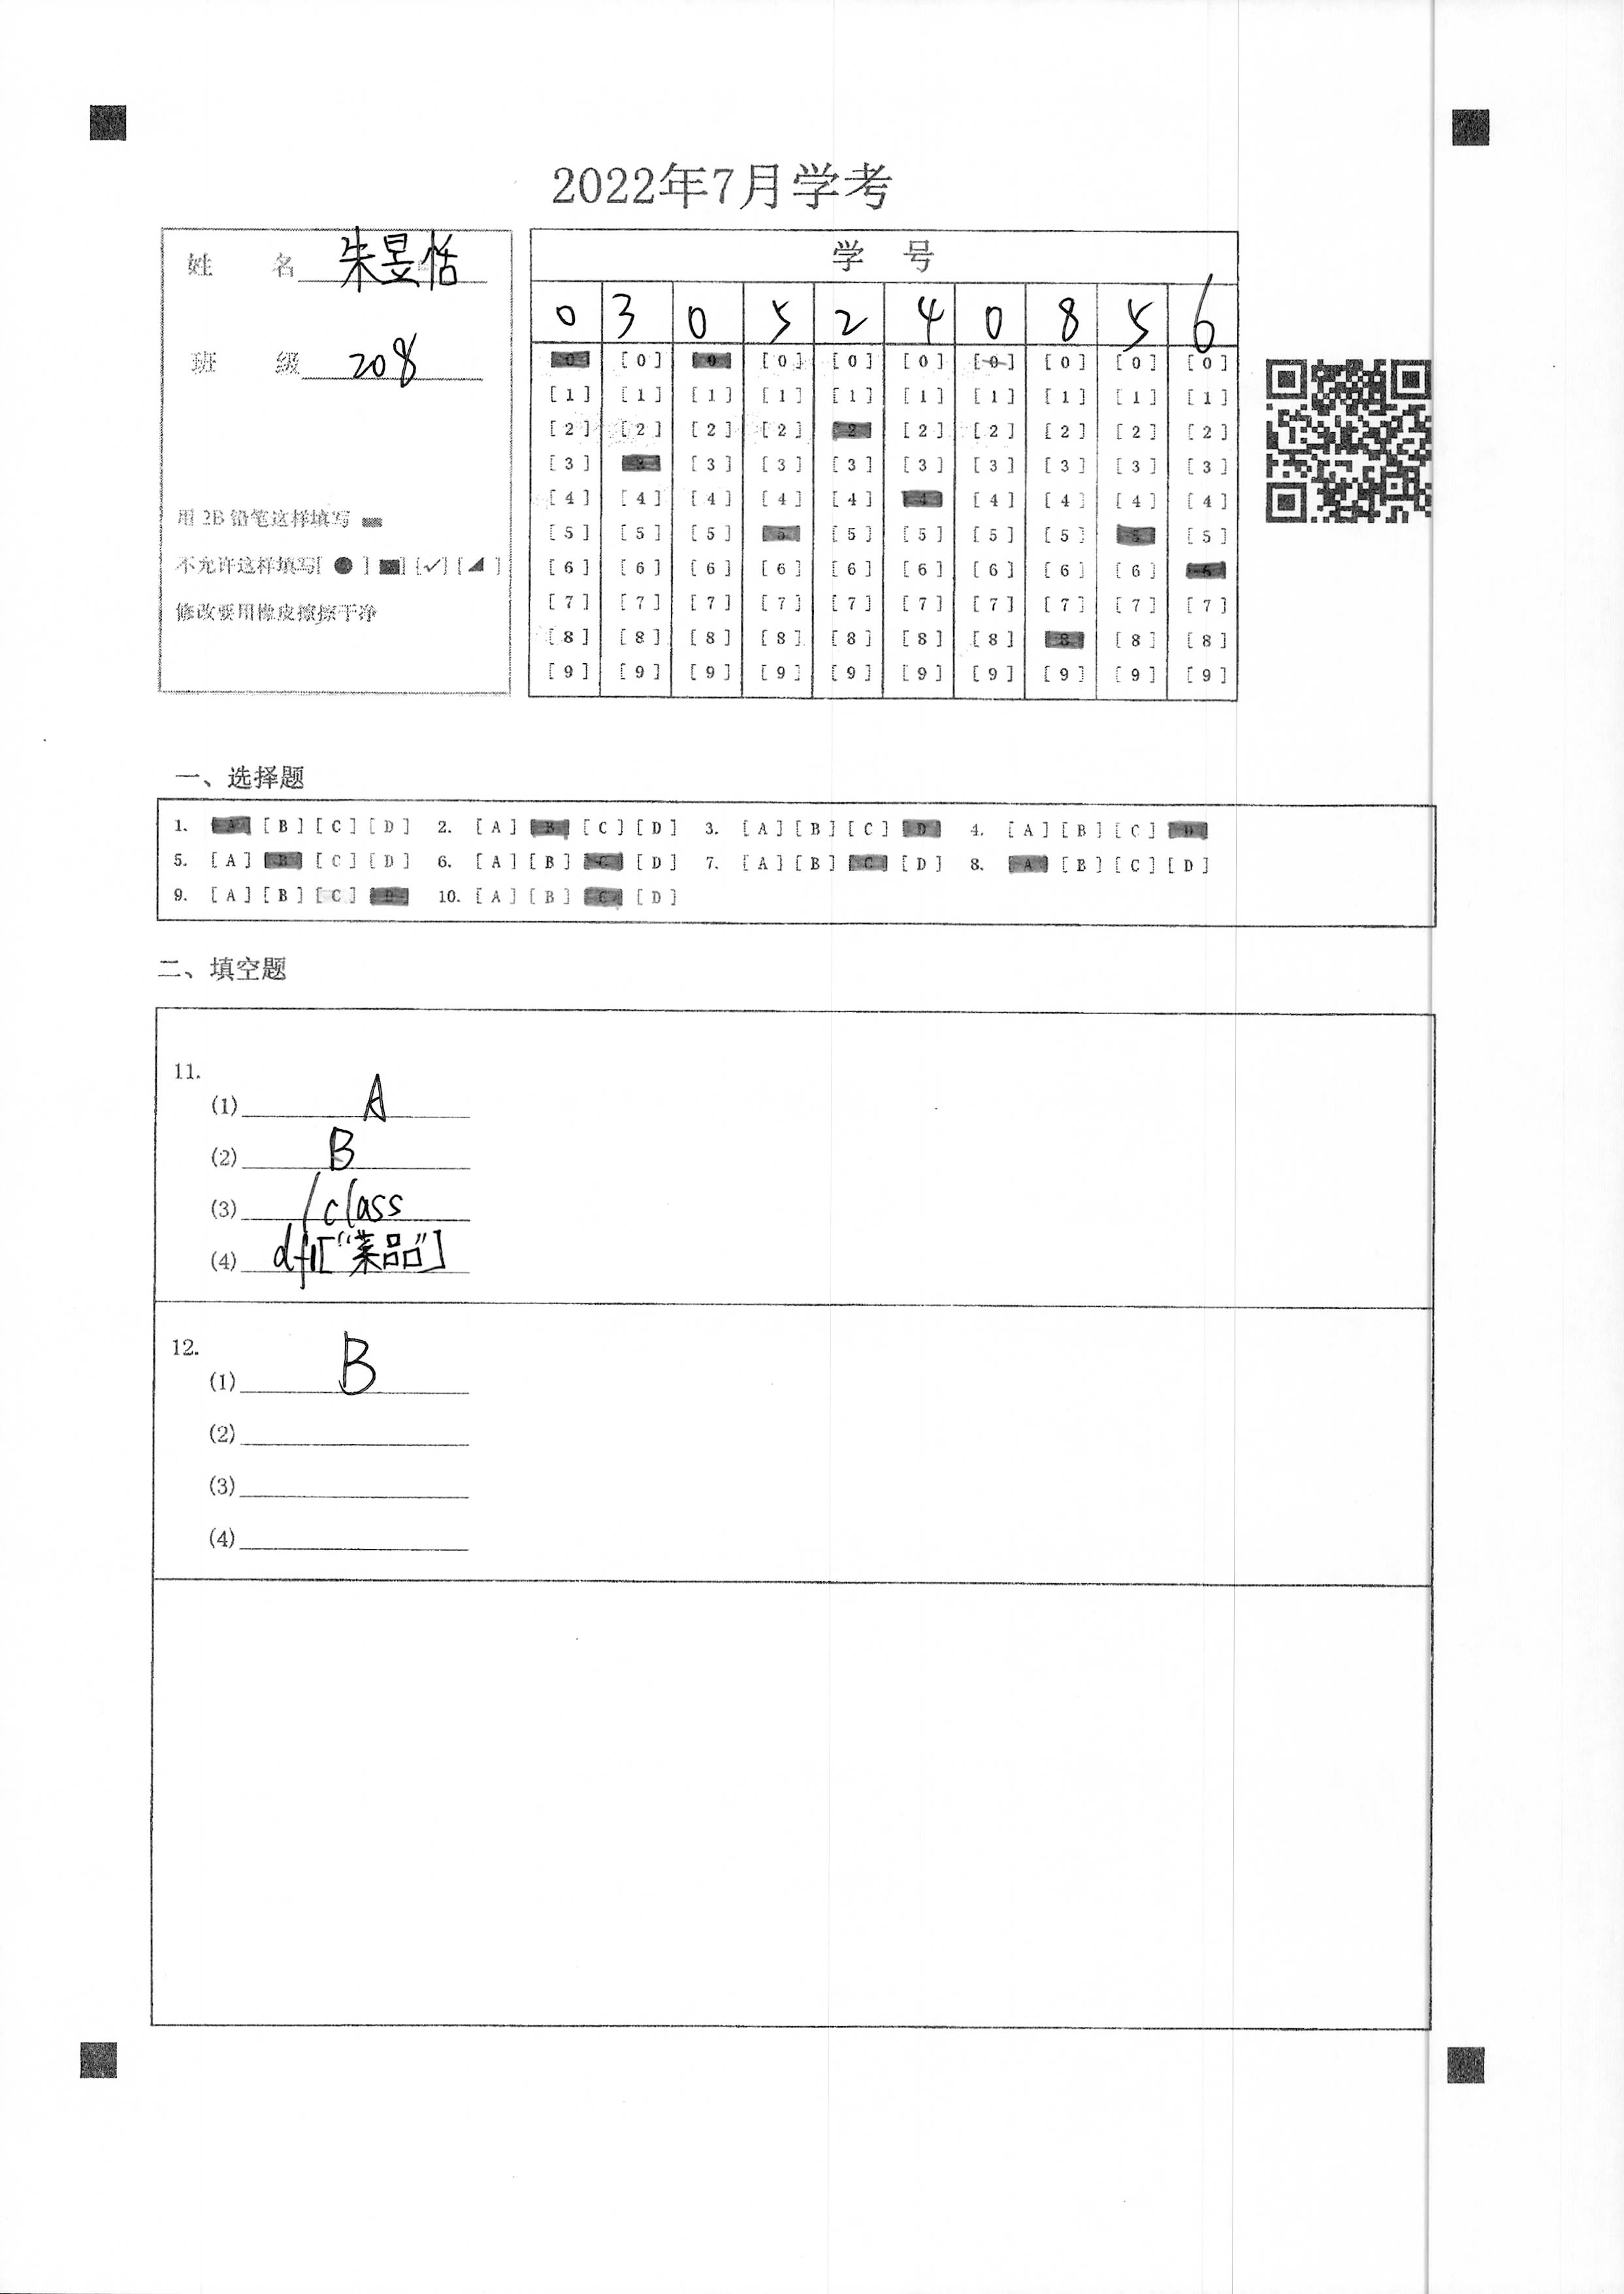 2022年7月学考
姓 名 朱昱恬
班 级 208
用 2B 铅笔这样填写
不允许这样填写[ ● ] ■] [✓] [◢ ]
修改要用橡皮擦擦干净
学 号
0 3 0 5 2 4 0 8 5 6
[0] [0] [0] [0] [0] [0] [0] [0] [0] [0]
[1] [1] [1] [1] [1] [1] [1] [1] [1] [1]
[2] [2] [2] [2] [2] [2] [2] [2] [2] [2]
[3] [3] [3] [3] [3] [3] [3] [3] [3] [3]
[4] [4] [4] [4] [4] [4] [4] [4] [4] [4]
[5] [5] [5] [5] [5] [5] [5] [5] [5] [5]
[6] [6] [6] [6] [6] [6] [6] [6] [6] [6]
[7] [7] [7] [7] [7] [7] [7] [7] [7] [7]
[8] [8] [8] [8] [8] [8] [8] [8] [8] [8]
[9] [9] [9] [9] [9] [9] [9] [9] [9] [9]
一、选择题
1. [A] [B] [C] [D] 2. [A] [B] [C] [D] 3. [A] [B] [C] [D] 4. [A] [B] [C] [D]
5. [A] [B] [C] [D] 6. [A] [B] [C] [D] 7. [A] [B] [C] [D] 8. [A] [B] [C] [D]
9. [A] [B] [C] [D] 10. [A] [B] [C] [D]
二、填空题
11.
(1) A
(2) B
(3) /class
(4) df1["菜品"]
12.
(1) B
(2)
(3)
(4)